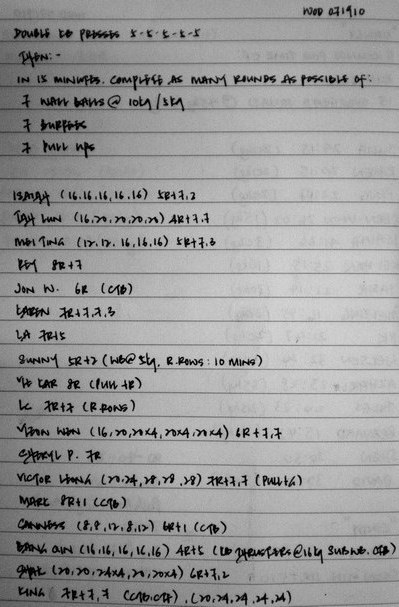 WOD 071910
DOUBLE KB PRESSES 5-5-5-5-5
THEN:-
IN 15 MINUTES. COMPLETE AS MANY ROUNDS AS POSSIBLE OF:
7 WALL BALLS @ 10kg/5kg
7 BURPEES
7 PULL UPS
ISAIAH (16,16,16,16,16) 5R+7,2
TAH LUN (16,20,20,20,20) 4R+7,7
MEI TING (12,12,16,16,16) 5R+7,3
REY 8R+7
JON W. 6R (CTB)
KAREN 7R+7,7,3
LA 7R+5
SUNNY 5R+2 (WB@5kg, R.ROWS: 10 MINS)
KAR 8R (PULL+R)
LC 7R+7 (R.ROWS)
WEN (16,20,20x4,20x4,20x4) 6R+7,7
CHERYL P. 7R
VICTOR LEONG (20,24,28,28,28) 7R+7,7
MARK 8R+1 (CTB)
CANNESS (8,8,12,8,12) 6R+1 (CTB)
BANG (16,16,16,16,16) 4R+5 (KB THRUSTERS@16kg SUB WB. CTB)
(20,20,24x4,20,20x4) 6R+7,2
KING 7R+7,7 (20,24,24,24,24)